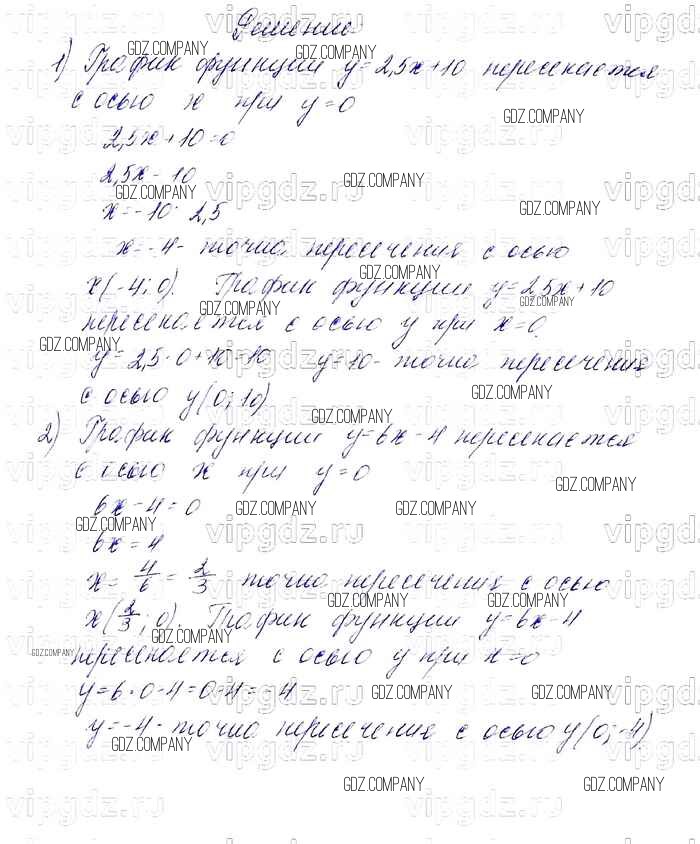 Решение
1) График функции y=2,5x+10 пересекается
с осью x при y=0
2,5x+10=0
2,5x - 10
x=-10: 2,5
x=-4- точка пересечения с осью
x(-4; 0). График функции y=2,5x+10
пересекается с осью y при x=0.
y=2,5·0+10=10 y=10- точка пересечения
с осью y(0; 10)
2) График функции y=6x-4 пересекается
с осью x при y=0
6x-4=0
6x=4
x= 4/6 = 2/3 точка пересечения с осью
x(2/3; 0). График функции y=6x-4
пересекается с осью y при x=0
y=6·0-4=0-4=-4
y=-4- точка пересечения с осью y(0;-4)
GDZ.COMPANY
vipgdz.ru